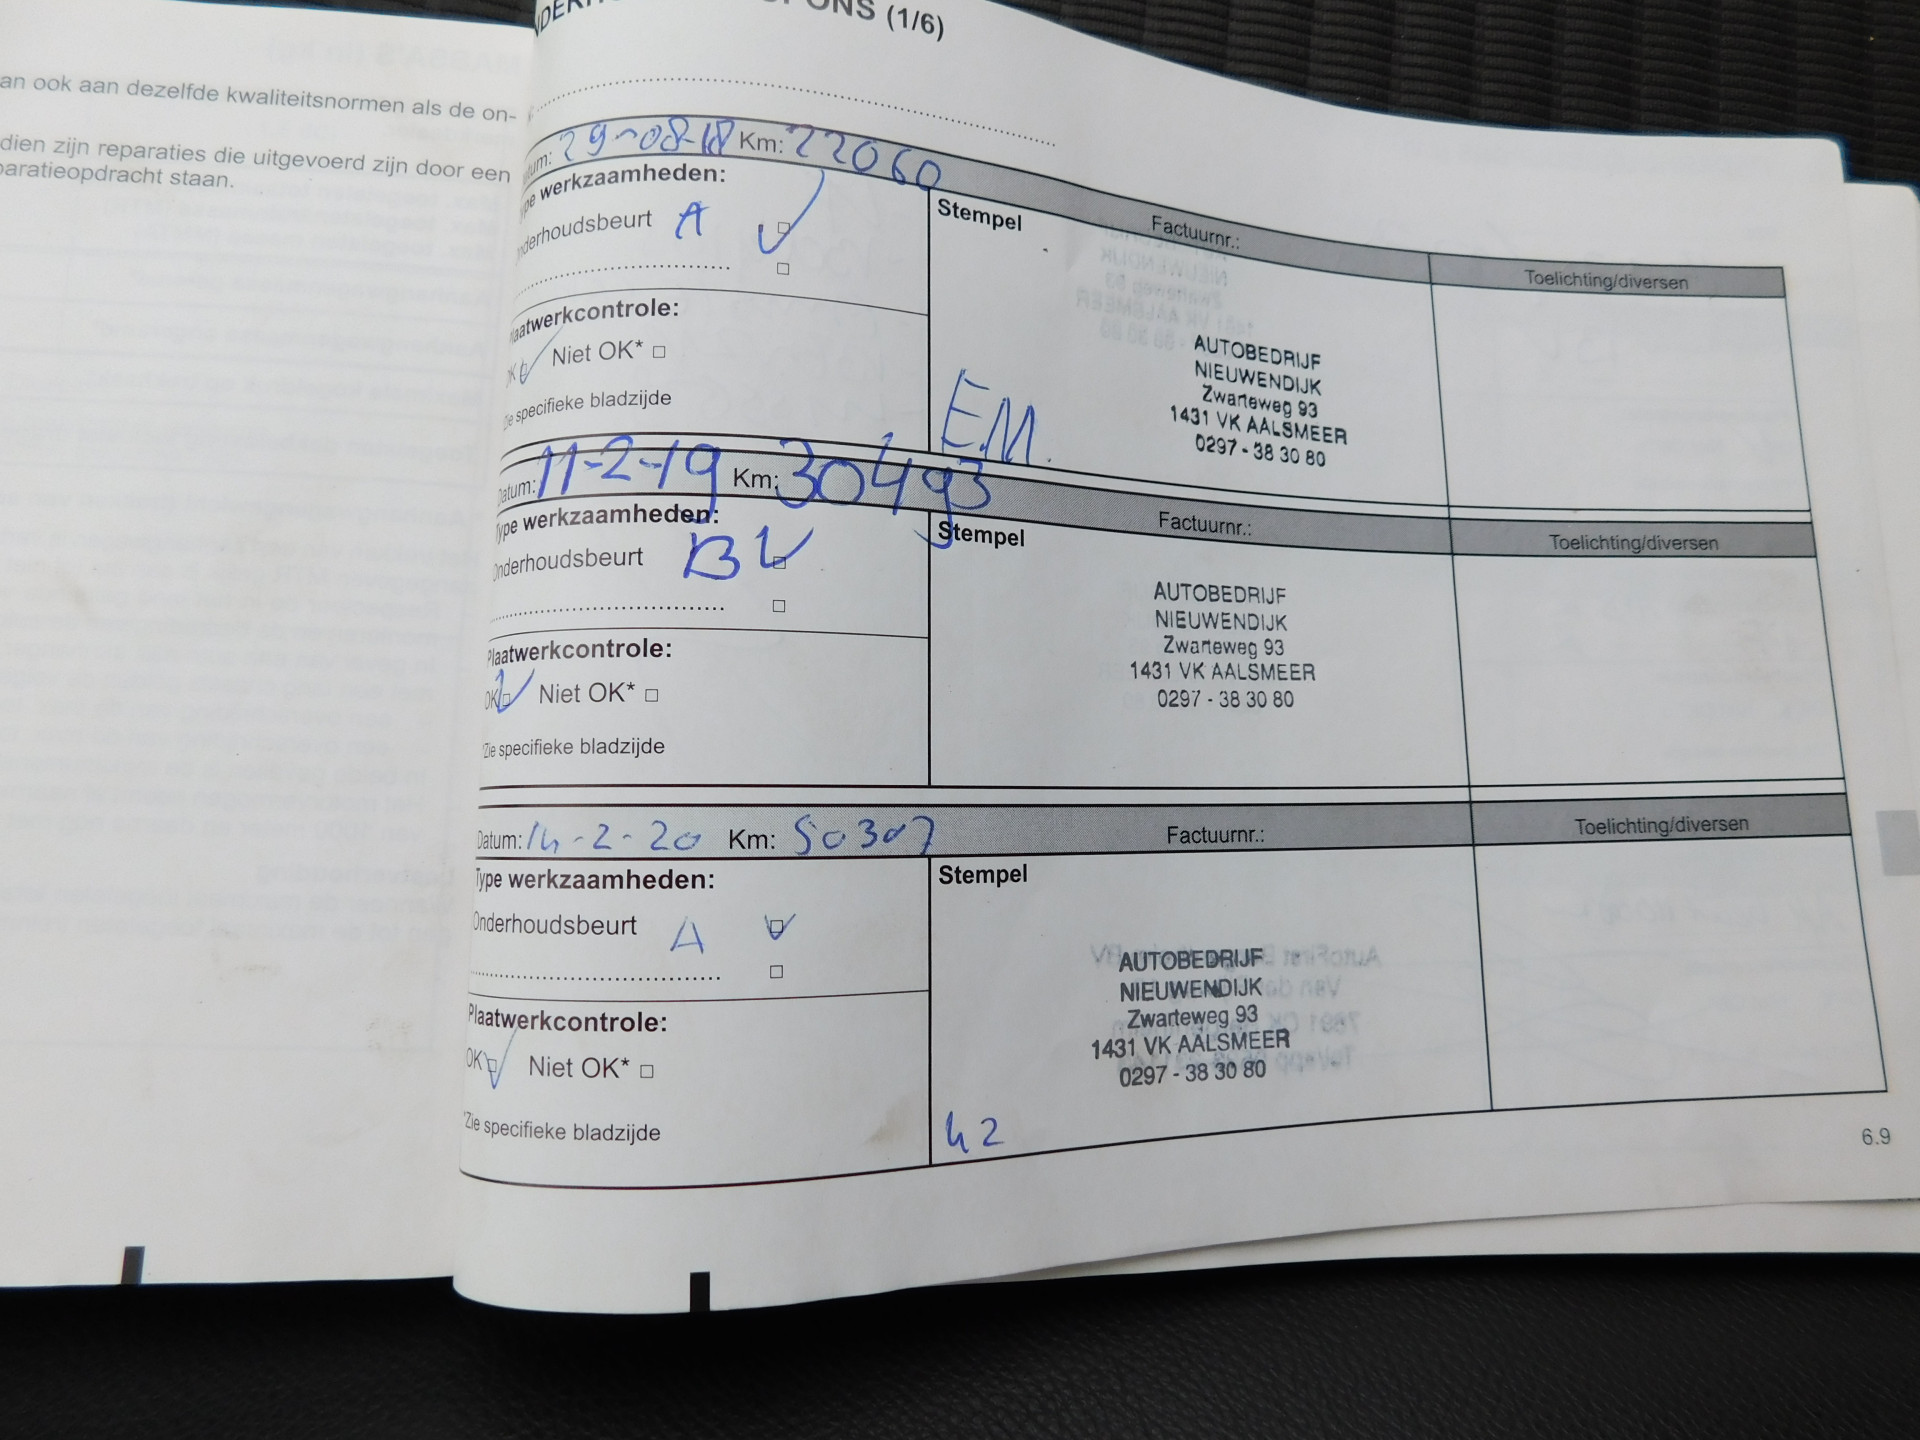 an ook aan dezelfde kwaliteitsnormen als de on-
dien zijn reparaties die uitgevoerd zijn door een
paratieopdracht staan.
(1/6)
Datum: 29-08-18 Km: 22060
Type werkzaamheden:
Onderhoudsbeurt A
Stempel
Factuurnr.:
Toelichting/diversen
Plaatwerkcontrole:
OK Niet OK*
Zie specifieke bladzijde
EM.
AUTOBEDRIJF
NIEUWENDIJK
Zwarteweg 93
1431 VK AALSMEER
0297 - 38 30 80
Datum: 11-2-19 Km: 30493
Type werkzaamheden:
Onderhoudsbeurt B
Stempel
Factuurnr.:
Toelichting/diversen
Plaatwerkcontrole:
OK Niet OK*
*Zie specifieke bladzijde
AUTOBEDRIJF
NIEUWENDIJK
Zwarteweg 93
1431 VK AALSMEER
0297 - 38 30 80
Datum: 14-2-20 Km: 50307
Type werkzaamheden:
Onderhoudsbeurt A
Stempel
Factuurnr.:
Toelichting/diversen
Plaatwerkcontrole:
OK Niet OK*
*Zie specifieke bladzijde
AUTOBEDRIJF
NIEUWENDIJK
Zwarteweg 93
1431 VK AALSMEER
0297 - 38 30 80
6.9